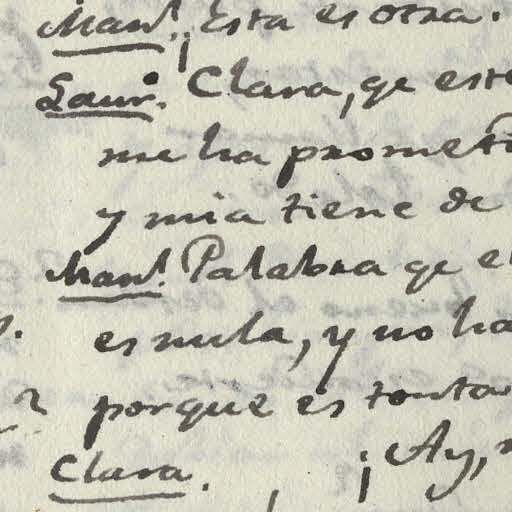 Man.l ¡Esta es otra.
Laur.o Clara, qe este
me ha prometi
y mia tiene de
Man.l Palabra qe e
es nula, y no ha
porque es tonta
Clara. ¡Ay,